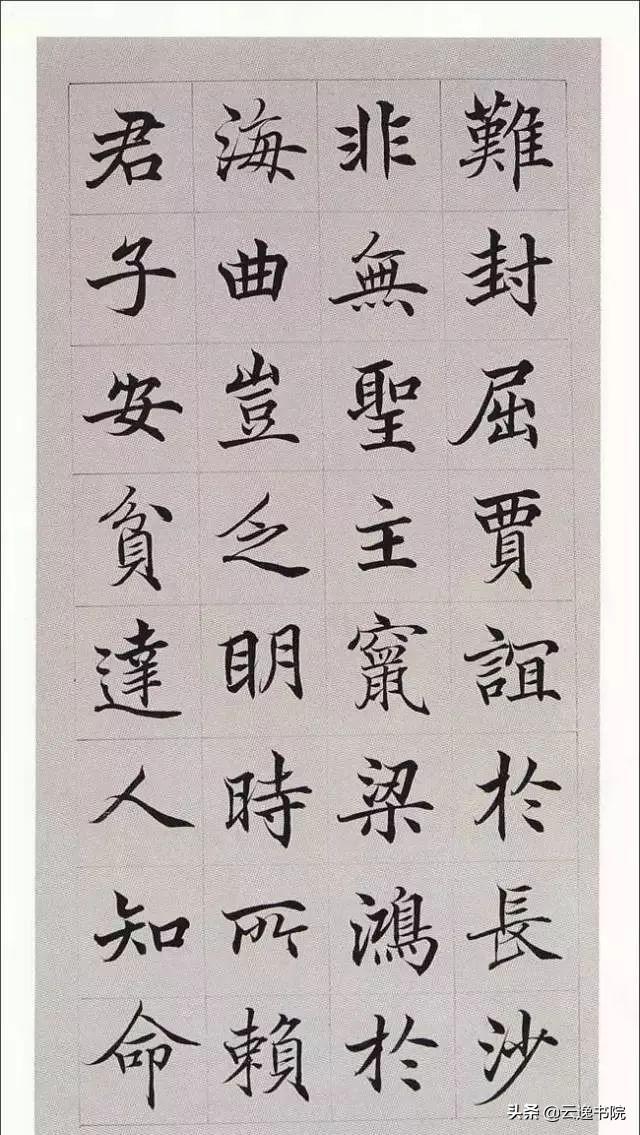 難封屈賈誼於長沙
非無聖主竄梁鴻於
海曲豈乏明時所賴
君子安貧達人知命
头条@云逸书院